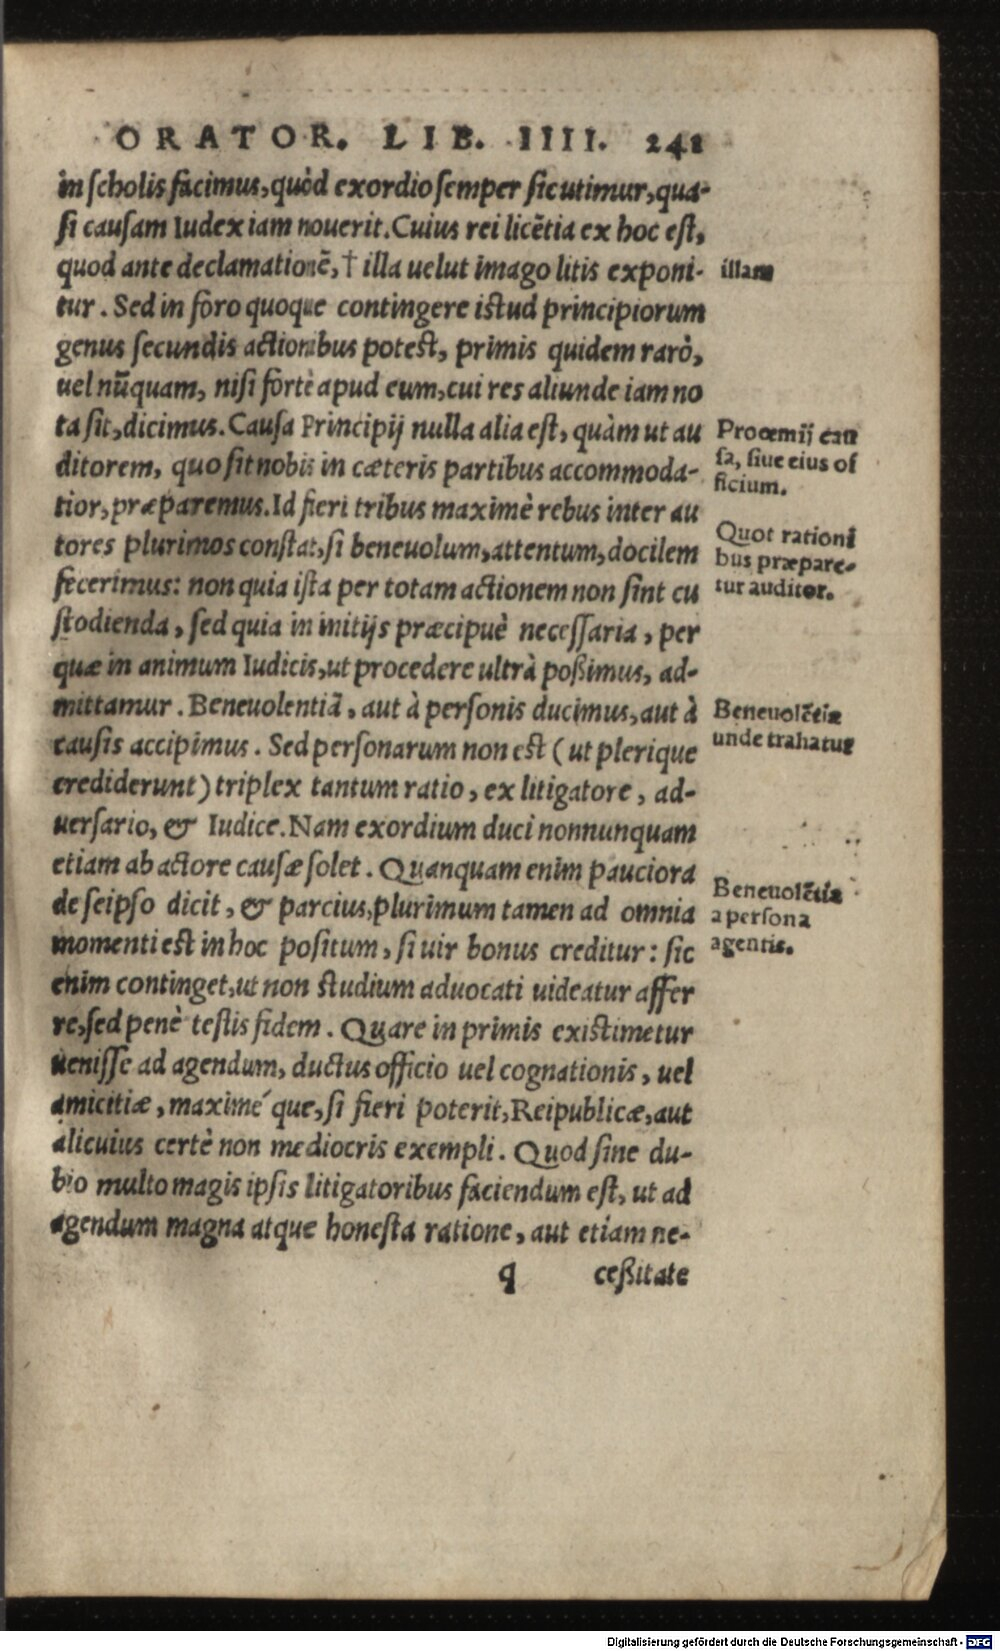 ORATOR. LIB. IIII. 241
in scholis facimus, quòd exordio semper sic utimur, qua-
si causam Iudex iam nouerit. Cuius rei licẽtia ex hoc est,
quod ante declamationẽ, † illa uelut imago litis exponi-
illam
tur. Sed in foro quoque contingere istud principiorum
genus secundis actionibus potest, primis quidem rarò,
uel nũquam, nisi fortè apud eum, cui res aliunde iam no
ta sit, dicimus. Causa Principij nulla alia est, quàm ut au
ditorem, quo sit nobis in cæteris partibus accommoda-
tior, præparemus. Id fieri tribus maximè rebus inter au
Proœmij cau
sa, siue eius of
ficium.
tores plurimos constat, si beneuolum, attentum, docilem
fecerimus: non quia ista per totam actionem non sint cu
Quot rationi
bus præpare-
tur auditor.
stodienda, sed quia in initijs præcipuè necessaria, per
quæ in animum Iudicis, ut procedere ultrà poßimus, ad-
mittamur. Beneuolentiã, aut à personis ducimus, aut à
causis accipimus. Sed personarum non est (ut plerique
Beneuolẽtiæ
unde trahatur
crediderunt) triplex tantum ratio, ex litigatore, ad-
uersario, & Iudice. Nam exordium duci nonnunquam
etiam ab actore causæ solet. Quanquam enim pauciora
de seipso dicit, & parcius, plurimum tamen ad omnia
momenti est in hoc positum, si uir bonus creditur: sic
Beneuolẽtia
a persona
agentis.
enim continget, ut non studium aduocati uideatur affer
re, sed penè testis fidem. Quare in primis existimetur
uenisse ad agendum, ductus officio uel cognationis, uel
amicitiæ, maximé que, si fieri poterit, Reipublicæ, aut
alicuius certè non mediocris exempli. Quod sine du-
bio multo magis ipsis litigatoribus faciendum est, ut ad
agendum magna atque honesta ratione, aut etiam ne-
q ceßitate
Digitalisierung gefördert durch die Deutsche Forschungsgemeinschaft - DFG